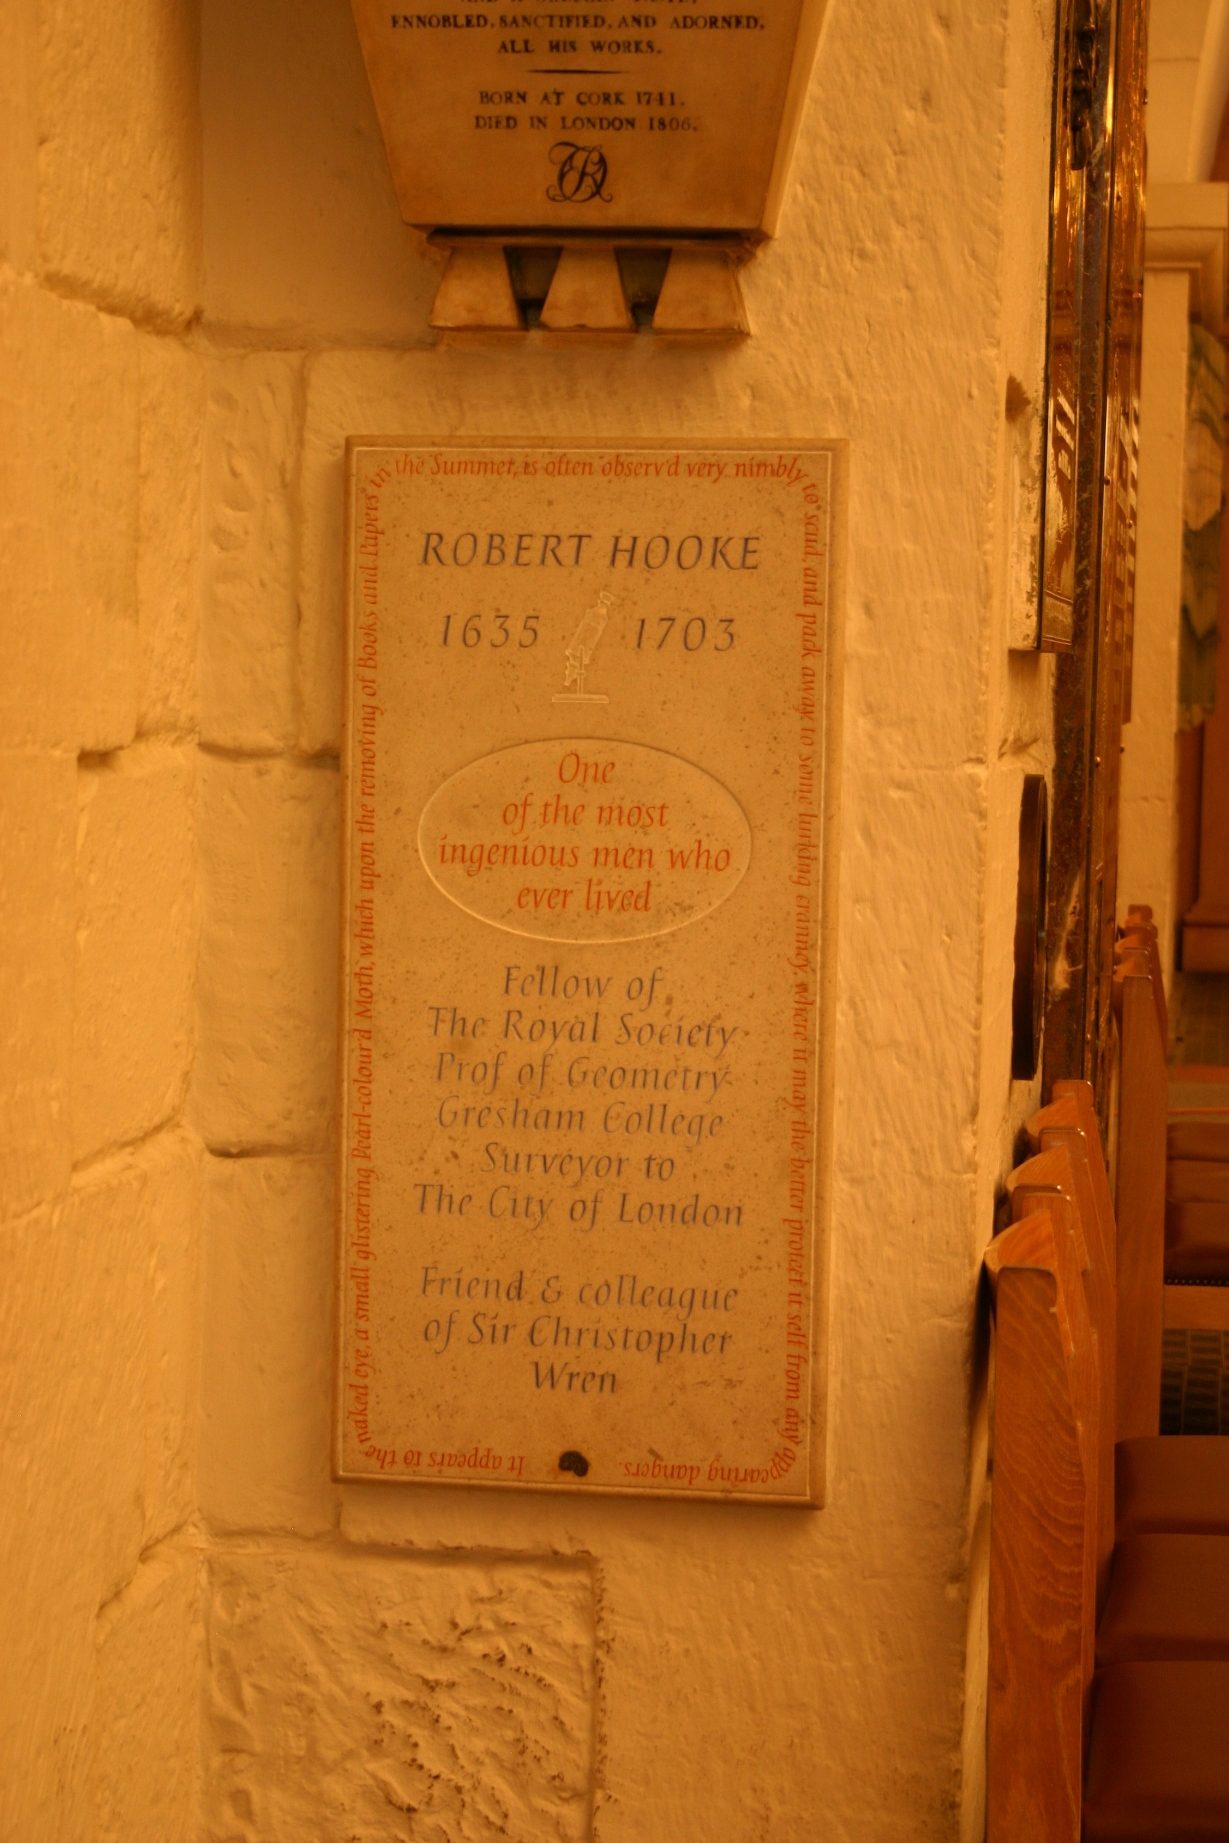 ENNOBLED, SANCTIFIED, AND ADORNED,
ALL HIS WORKS.
BORN AT CORK 1741.
DIED IN LONDON 1806.
ROBERT HOOKE
1635 1703
One
of the most
ingenious men who
ever lived
Fellow of
The Royal Society
Prof of Geometry
Gresham College
Surveyor to
The City of London
Friend & colleague
of Sir Christopher
Wren
It appears to the
naked eye, a small glistering Pearl-colour'd Moth, which upon the removing of Books and Papers in
the Summer, is often observ'd very nimbly
to scud, and pack away to some lurking cranney, where it may the better protect it self from any
appearing dangers.